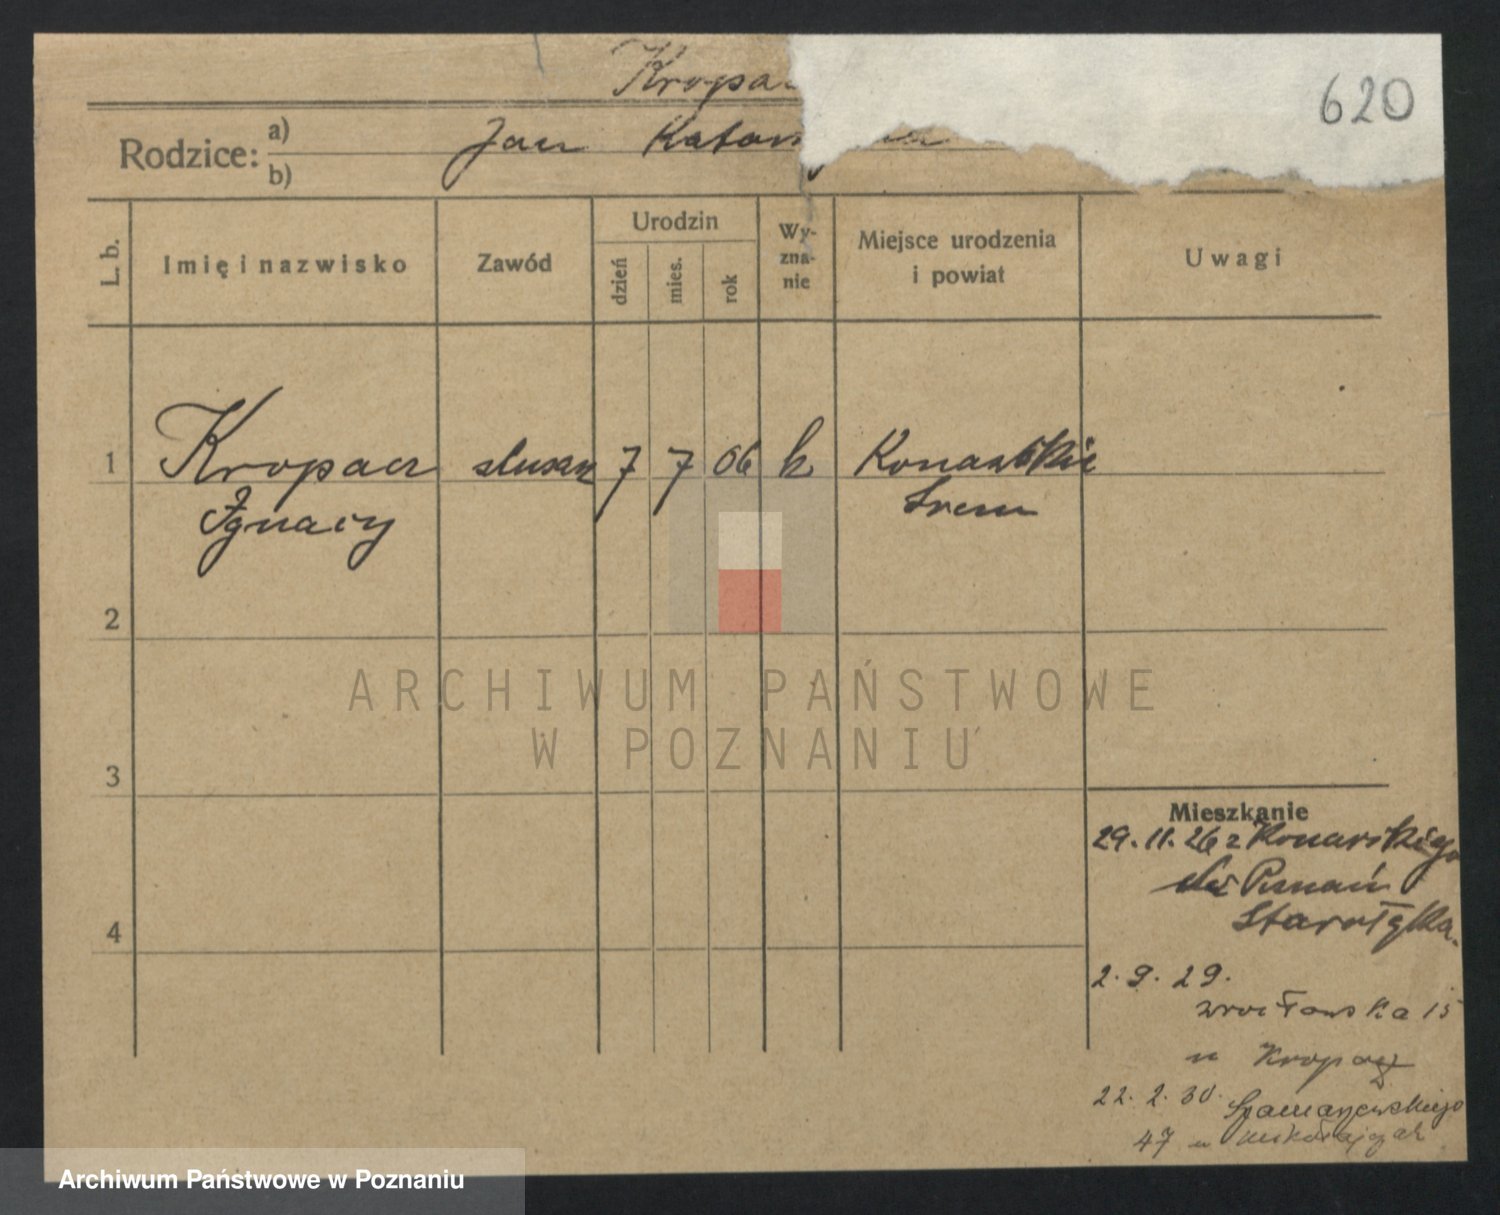 620
Rodzice: a) Jan
b)
L. b.
Imię i nazwisko
Zawód
Urodzin
dzień
mies.
rok
Wy-
zna-
nie
Miejsce urodzenia
i powiat
Uwagi
1 Kropacz 7 7 06 k Konarskie
Ignacy Śrem
2
3
4
Mieszkanie
29.11.26 z Konarskiego
Poznań
Starołęka
2.9.29.
Wrocławska 15
u Kropacz
22.2.30. Szamarzewskiego
47 u Mikołajczak
ARCHIWUM PAŃSTWOWE
W POZNANIU
Archiwum Państwowe w Poznaniu